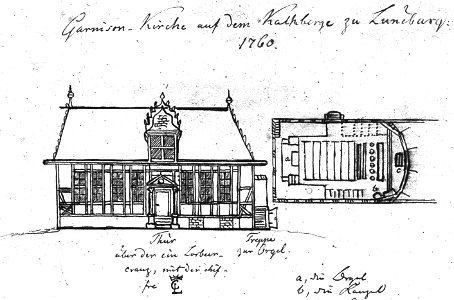 Garnison-Kirche auf dem Kalkberge zu Lüneburg.
1760.
Thür
über der ein Lorbeer-
cranz, mit der chif-
fre CL
Treppe
zur Orgel.
a, die Orgel
b, die Kanzel